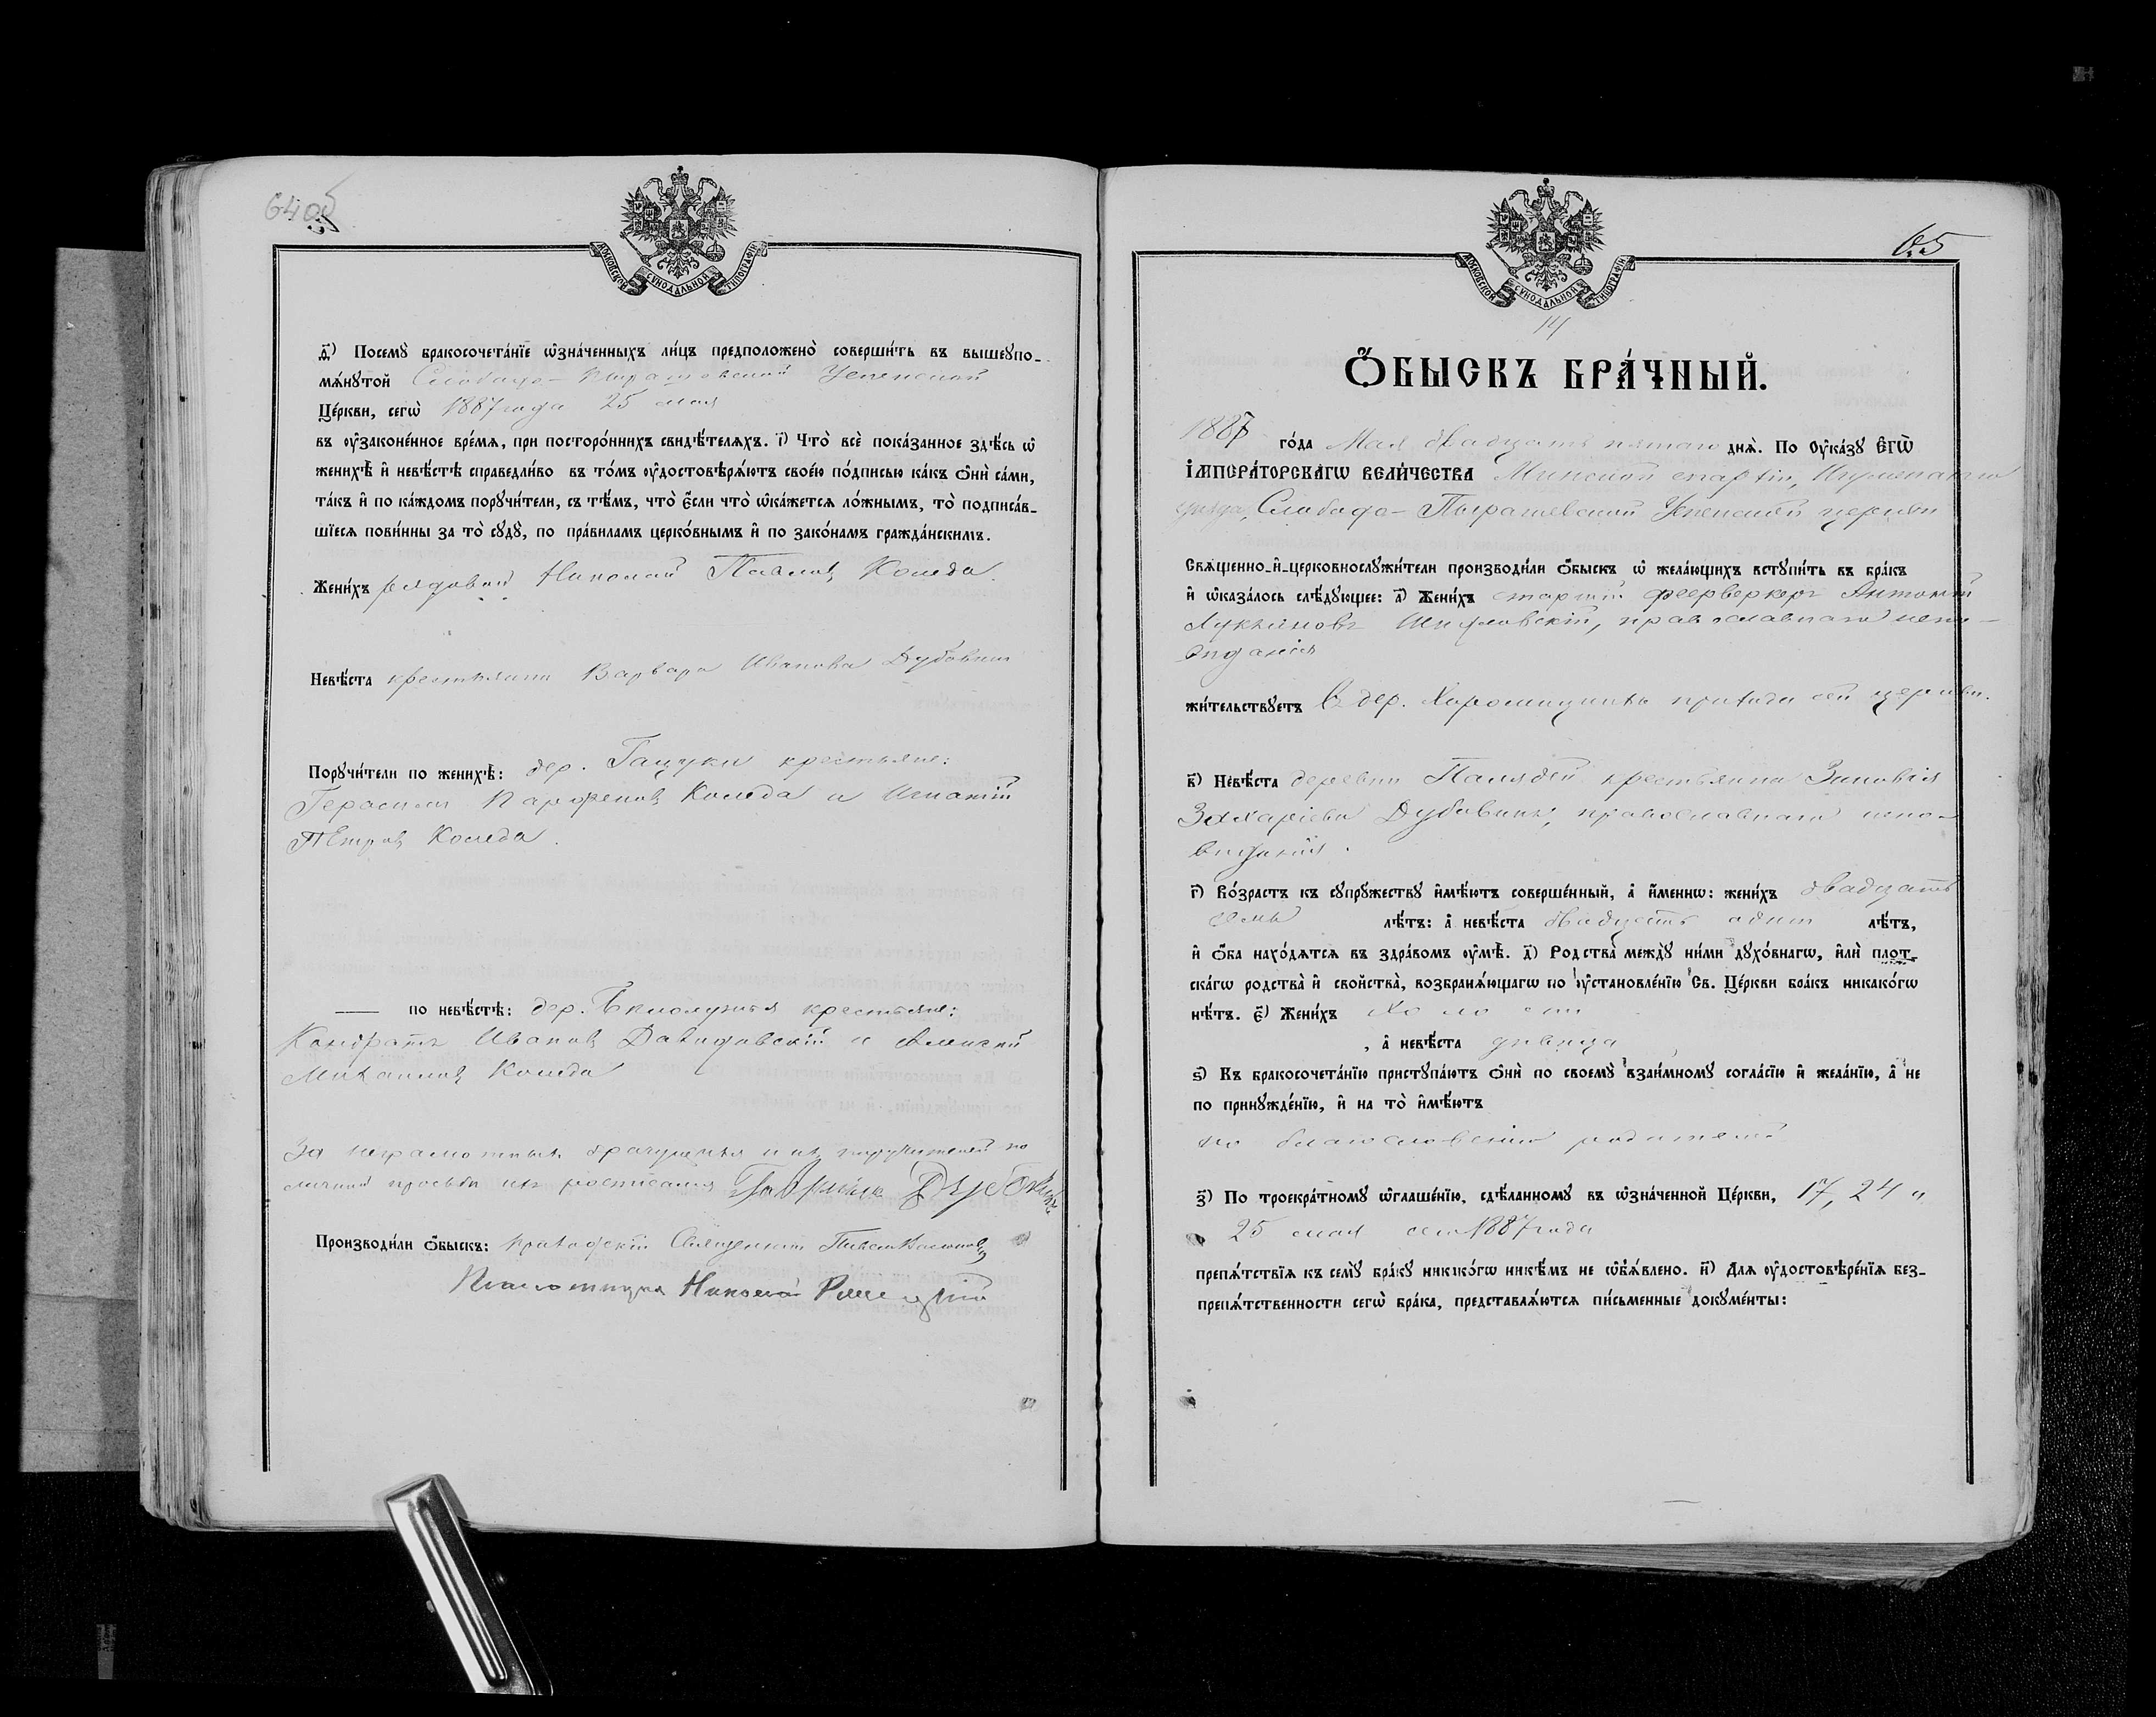 64об
МОСКОВСКОЙ СУНОДАЛЬНОЙ ТИПОГРАФІИ
д҃) Посемꙋ̀ бракосочета́нїе ѡ҆зна́ченныхъ ли́цъ предположено̀ соверши́ть въ вышеꙋпо-
мѧ́нꙋтой Слободо-Пырашевской Успенской
Це́ркви, сегѡ̀ 1887 года 25 мая
въ ᲂу҆законе́нное вре́мѧ, при посторо́ннихъ свидѣ́телѧхъ. і҃) Что̀ всѐ пока́занное здѣ́сь ѡ҆
женихѣ̀ и҆ невѣ́стѣ справедли́во въ то́мъ ᲂу҆достовѣрѧ́ютъ свое́ю по́дписью ка́къ ѻ҆нѝ са́ми,
та́къ и҆ по ка́ждомъ порꙋчи́тели, съ тѣ́мъ, что̀ є҆́сли что̀ ѡ҆ка́жетсѧ ло́жнымъ, то̀ подписа́в-
шїесѧ пови́нны за то̀ сꙋдꙋ̀, по пра́виламъ церко́внымъ и҆ по зако́намъ гражда́нскимъ.
Жени́хъ рядовой Николай Павловъ Коледа.
Невѣ́ста крестьянка Варвара Иванова Дубовикъ
Порꙋчи́тели по женихѣ̀: дер. Гацуки крестьяне:
Герасимъ Парфеновъ Коледа и Игнатій
Петровъ Коледа.
— по невѣ́стѣ: дер. крестьяне:
Кондратъ Ивановъ Давидовскій и Алексѣй
Михаиловъ Коледа
За неграмотныхъ брачущихся и ихъ поручителей по
личной просьбѣ ихъ росписался
Производи́ли ѻ҆́быскъ: приходскій Священникъ
Псаломщикъ Николай
65
МОСКОВСКОЙ СУНОДАЛЬНОЙ ТИПОГРАФІИ
14
Ѻ҆́БЫСКЪ БРА́ЧНЫЙ.
1887 го́да Мая двадцать пятаго днѧ̀. По Оу҆ка́зꙋ Є҆гѡ̀
І҆мпера́торскагѡ вели́чества Минской епархіи, Игуменскаго
уѣзда, Слободо-Пырашевской Успенской церкви
Свѧще́нно-и҆-церковнослꙋжи́тели производи́ли ѻ҆́быскъ ѡ҆ жела́ющихъ встꙋпи́ть въ бра́къ
и҆ ѡ҆каза́лось слѣ́дꙋющее: а҃) Жени́хъ старшій феерверкеръ Антоній
Лукьяновъ православнаго испо-
вѣданія
жи́тельствꙋетъ въ дер. прихода сей церкви.
в҃) Невѣ́ста деревни крестьянка Зиновія
Захаріева Дубовикъ, православнаго испо-
вѣданія.
г҃) Во́зрастъ къ сꙋпрꙋжествꙋ и҆мѣ́ютъ соверше́нный, а҆̀ и҆́меннѡ: жени́хъ двадцать
семь лѣ́тъ: а҆̀ невѣ́ста двадцать одинъ лѣ́тъ,
и҆ ѻ҆́ба нахо́дѧтсѧ въ здра́вомъ ᲂу҆мѣ̀. д҃) Родства̀ междꙋ̀ ни́ми дꙋхо́внагѡ, и҆лѝ плот-
ска́гѡ родства̀ и҆ свойства̀, возбранѧ́ющагѡ по ᲂу҆становле́нїю Св. Це́ркви бра́къ никако́гѡ
нѣ́тъ. є҃) Жени́хъ холостъ
, а҆̀ невѣ́ста дѣвица
ѕ҃) Къ бракосочета́нїю пристꙋпа́ютъ ѻ҆нѝ по своемꙋ̀ взаи́мномꙋ согла́сїю и҆ жела́нїю, а҆̀ не
по принꙋжде́нїю, и҆ на то̀ и҆мѣ́ютъ
по благословенію родителей
з҃) По троекра́тномꙋ ѡ҆глаше́нїю, сдѣ́ланномꙋ въ ѡ҆зна́ченной Це́ркви, 17, 24 и
25 мая сего 1887 года
препѧ́тствїѧ къ семꙋ̀ бра́кꙋ никако́гѡ никѣ́мъ не ѡ҆бѧ́влено. и҃) Длѧ ᲂу҆достовѣре́нїѧ без-
препѧ́тственности сегѡ̀ бра́ка, представлѧ́ютсѧ пи́сьменные докꙋме́нты: